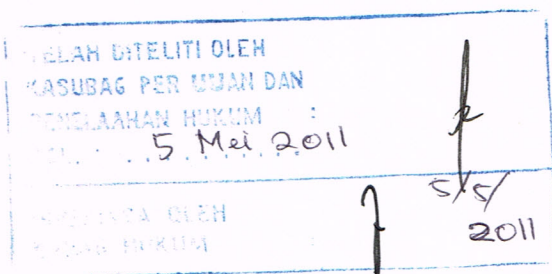 TELAH DITELITI OLEH
KASUBAG PER UUAN DAN
PENELAAHAN HUKUM :
5 Mei 2011
5/5/
2011
OLEH
HUKUM :